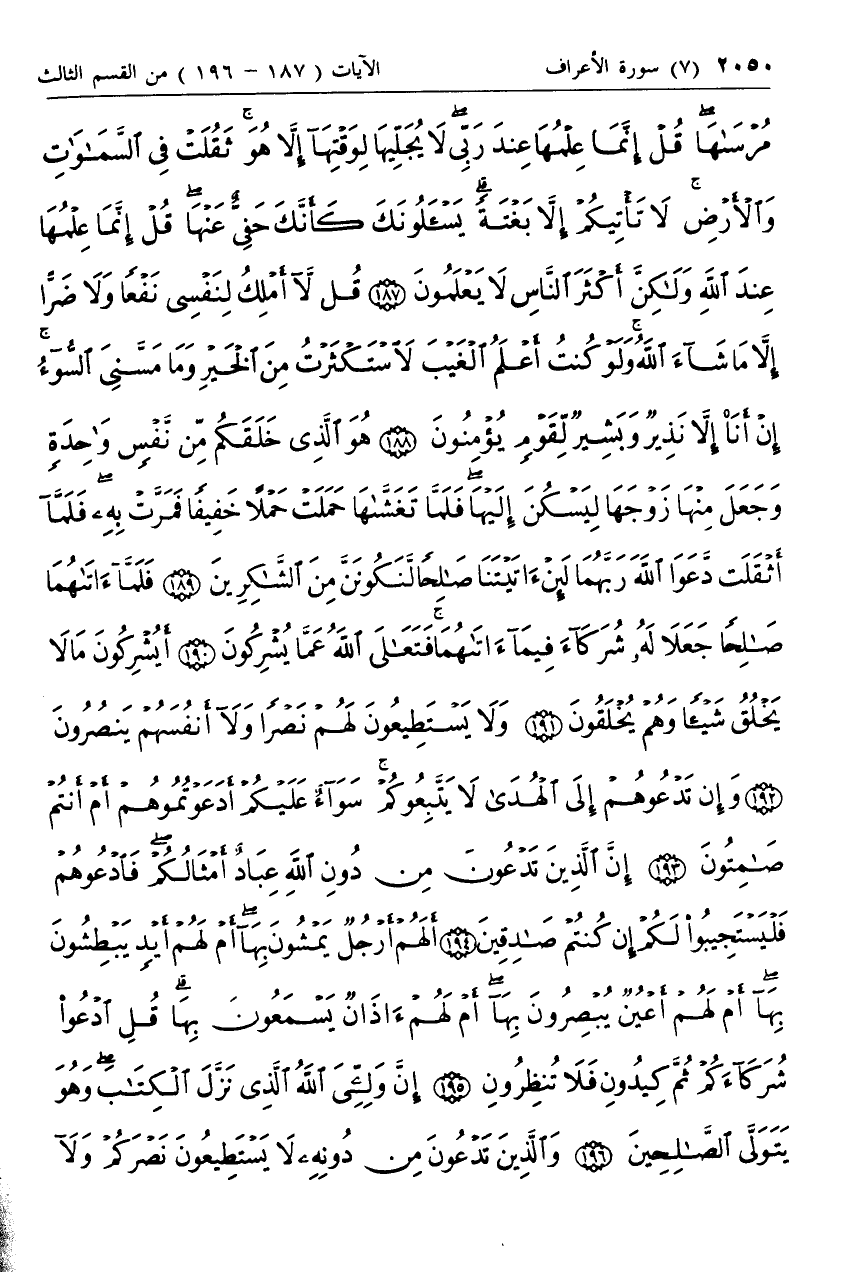 ٢٠٥٠ (٧) سورة الأعراف الآيات ( ١٨٧ – ١٩٦ ) من القسم الثالث
مُرْسَىٰهَا ۖ قُلْ إِنَّمَا عِلْمُهَا عِندَ رَبِّى ۖ لَا يُجَلِّيهَا لِوَقْتِهَآ إِلَّا هُوَ ۚ ثَقُلَتْ فِى ٱلسَّمَـٰوَٰتِ
وَٱلْأَرْضِ ۚ لَا تَأْتِيكُمْ إِلَّا بَغْتَةً ۗ يَسْـَٔلُونَكَ كَأَنَّكَ حَفِىٌّ عَنْهَا ۖ قُلْ إِنَّمَا عِلْمُهَا
عِندَ ٱللَّهِ وَلَـٰكِنَّ أَكْثَرَ ٱلنَّاسِ لَا يَعْلَمُونَ ١٨٧ قُل لَّآ أَمْلِكُ لِنَفْسِى نَفْعًا وَلَا ضَرًّا
إِلَّا مَا شَآءَ ٱللَّهُ ۚ وَلَوْ كُنتُ أَعْلَمُ ٱلْغَيْبَ لَٱسْتَكْثَرْتُ مِنَ ٱلْخَيْرِ وَمَا مَسَّنِىَ ٱلسُّوٓءُ ۚ
إِنْ أَنَا۠ إِلَّا نَذِيرٌ وَبَشِيرٌ لِّقَوْمٍ يُؤْمِنُونَ ١٨٨ هُوَ ٱلَّذِى خَلَقَكُم مِّن نَّفْسٍ وَٰحِدَةٍ
وَجَعَلَ مِنْهَا زَوْجَهَا لِيَسْكُنَ إِلَيْهَا ۖ فَلَمَّا تَغَشَّىٰهَا حَمَلَتْ حَمْلًا خَفِيفًا فَمَرَّتْ بِهِۦ ۖ فَلَمَّآ
أَثْقَلَت دَّعَوَا ٱللَّهَ رَبَّهُمَا لَئِنْ ءَاتَيْتَنَا صَـٰلِحًا لَّنَكُونَنَّ مِنَ ٱلشَّـٰكِرِينَ ١٨٩ فَلَمَّآ ءَاتَىٰهُمَا
صَـٰلِحًا جَعَلَا لَهُۥ شُرَكَآءَ فِيمَآ ءَاتَىٰهُمَا ۚ فَتَعَـٰلَى ٱللَّهُ عَمَّا يُشْرِكُونَ ١٩٠ أَيُشْرِكُونَ مَا لَا
يَخْلُقُ شَيْـًٔا وَهُمْ يُخْلَقُونَ ١٩١ وَلَا يَسْتَطِيعُونَ لَهُمْ نَصْرًا وَلَآ أَنفُسَهُمْ يَنصُرُونَ
١٩٢ وَإِن تَدْعُوهُمْ إِلَى ٱلْهُدَىٰ لَا يَتَّبِعُوكُمْ ۚ سَوَآءٌ عَلَيْكُمْ أَدَعَوْتُمُوهُمْ أَمْ أَنتُمْ
صَـٰمِتُونَ ١٩٣ إِنَّ ٱلَّذِينَ تَدْعُونَ مِن دُونِ ٱللَّهِ عِبَادٌ أَمْثَالُكُمْ ۖ فَٱدْعُوهُمْ
فَلْيَسْتَجِيبُوا۟ لَكُمْ إِن كُنتُمْ صَـٰدِقِينَ ١٩٤ أَلَهُمْ أَرْجُلٌ يَمْشُونَ بِهَآ ۖ أَمْ لَهُمْ أَيْدٍ يَبْطِشُونَ
بِهَآ ۖ أَمْ لَهُمْ أَعْيُنٌ يُبْصِرُونَ بِهَآ ۖ أَمْ لَهُمْ ءَاذَانٌ يَسْمَعُونَ بِهَا ۗ قُلِ ٱدْعُوا۟
شُرَكَآءَكُمْ ثُمَّ كِيدُونِ فَلَا تُنظِرُونِ ١٩٥ إِنَّ وَلِـِّۧىَ ٱللَّهُ ٱلَّذِى نَزَّلَ ٱلْكِتَـٰبَ ۖ وَهُوَ
يَتَوَلَّى ٱلصَّـٰلِحِينَ ١٩٦ وَٱلَّذِينَ تَدْعُونَ مِن دُونِهِۦ لَا يَسْتَطِيعُونَ نَصْرَكُمْ وَلَآ